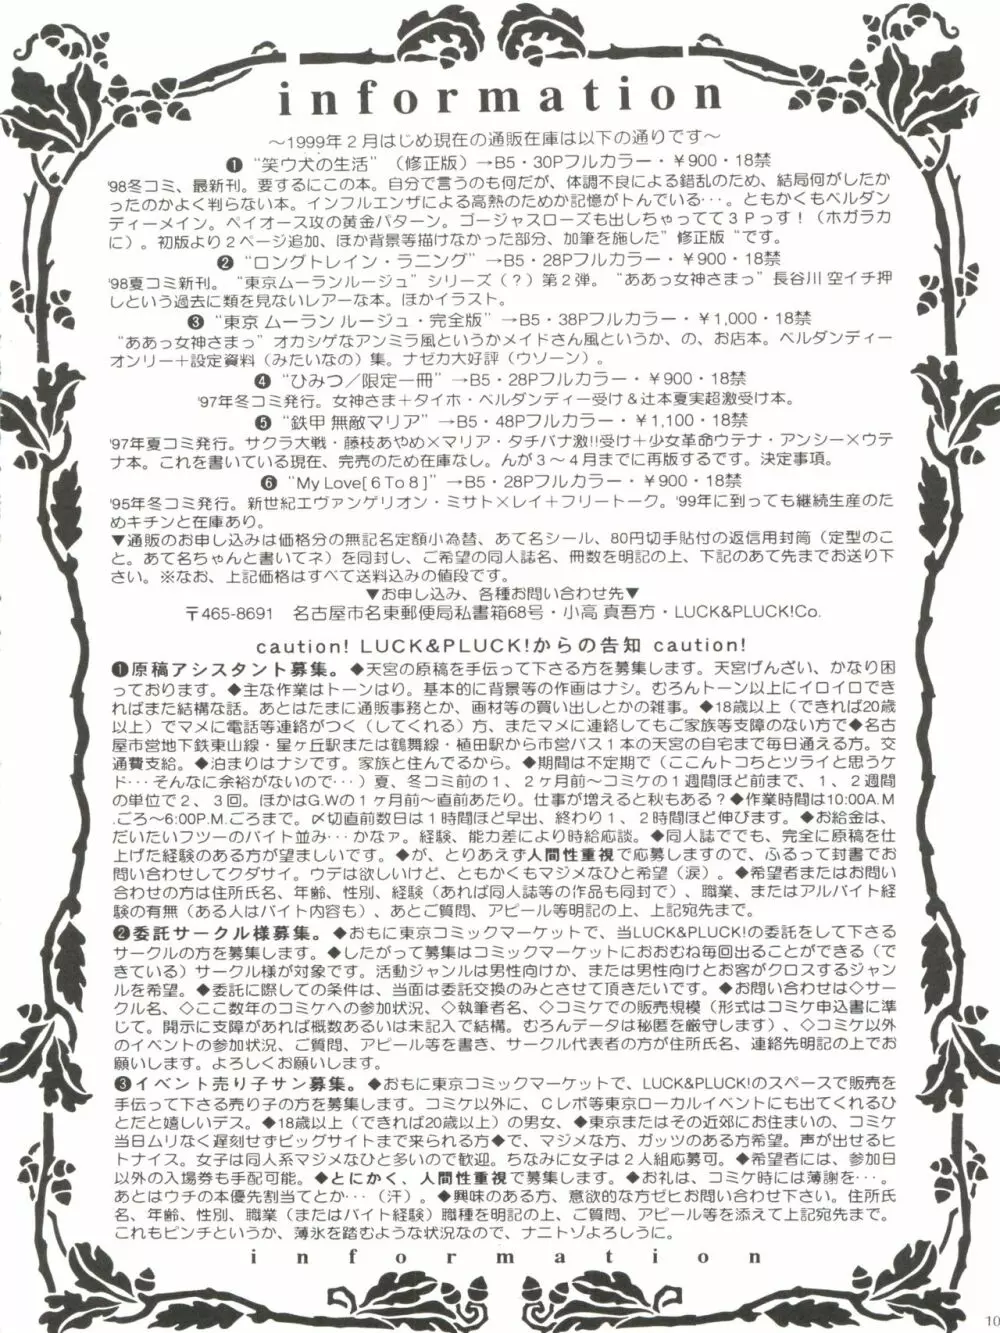 information
～1999年２月はじめ現在の通販在庫は以下の通りです～
❶ “笑ウ犬の生活”（修正版）→B5・30Pフルカラー・￥900・18禁
'98冬コミ、最新刊。要するにこの本。自分で言うのも何だが、体調不良による錯乱のため、結局何がしたか
ったのかよく判らない本。インフルエンザによる高熱のためか記憶がトんでいる･･･。ともかくもベルダン
ディーメイン。ペイオース攻の黄金パターン。ゴージャスローズも出しちゃってて３Ｐっす！（ホガラカ
に）。初版より２ページ追加、ほか背景等描けなかった部分、加筆を施した”修正版“です。
❷ “ロングトレイン・ラニング”→B5・28Pフルカラー・￥900・18禁
'98夏コミ新刊。“東京ムーランルージュ”シリーズ（？）第２弾。“ああっ女神さまっ”長谷川 空イチ押
しという過去に類を見ないレアーな本。ほかイラスト。
❸ “東京 ムーラン ルージュ・完全版”→B5・38Pフルカラー・￥1,000・18禁
“ああっ女神さまっ”オカシゲなアンミラ風というかメイドさん風というか、の、お店本。ベルダンディー
オンリー＋設定資料（みたいなの）集。ナゼカ大好評（ウソーン）。
❹ “ひみつ／限定一冊”→B5・28Pフルカラー・￥900・18禁
'97年冬コミ発行。女神さま＋タイホ・ベルダンディー受け＆辻本夏実超激受け本。
❺ “鉄甲 無敵マリア”→B5・48Pフルカラー・￥1,100・18禁
'97年夏コミ発行。サクラ大戦・藤枝あやめ×マリア・タチバナ激!!受け＋少女革命ウテナ・アンシー×ウテ
ナ本。これを書いている現在、完売のため在庫なし。んが３～４月までに再版するです。決定事項。
❻ “My Love[６To８]”→B5・28Pフルカラー・￥900・18禁
'95年冬コミ発行。新世紀エヴァンゲリオン・ミサト×レイ＋フリートーク。'99年に到っても継続生産のた
めキチンと在庫あり。
▼通販のお申し込みは価格分の無記名定額小為替、あて名シール、80円切手貼付の返信用封筒（定型のこ
と。あて名ちゃんと書いてネ）を同封し、ご希望の同人誌名、冊数を明記の上、下記のあて先までお送り下
さい。※なお、上記価格はすべて送料込みの値段です。
▼お申し込み、各種お問い合わせ先▼
〒465-8691　名古屋市名東郵便局私書箱68号・小高 真吾方・LUCK&PLUCK!Co.
caution! LUCK&PLUCK!からの告知 caution!
❶原稿アシスタント募集。◆天宮の原稿を手伝って下さる方を募集します。天宮げんざい、かなり困
っております。◆主な作業はトーンはり。基本的に背景等の作画はナシ。むろんトーン以上にイロイロでき
ればまた結構な話。あとはたまに通販事務とか、画材等の買い出しとかの雑事。◆18歳以上（できれば20歳
以上）でマメに電話等連絡がつく（してくれる）方、またマメに連絡してもご家族等支障のない方で◆名古
屋市営地下鉄東山線・星ヶ丘駅または鶴舞線・植田駅から市営バス１本の天宮の自宅まで毎日通える方。交
通費支給。◆泊まりはナシです。家族と住んでるから。◆期間は不定期で（ここんトコちとツライと思うケ
ド･･･そんなに余裕がないので･･･）夏、冬コミ前の１、２ヶ月前～コミケの１週間ほど前まで、１、２週間
の単位で２、３回。ほかはG.Wの１ヶ月前～直前あたり。仕事が増えると秋もある？◆作業時間は10:00A.M
.ごろ～6:00P.M.ごろまで。〆切直前数日は１時間ほど早出、終わり１、２時間ほど伸びます。◆お給金は、
だいたいフツーのバイト並み･･･かなァ。経験、能力差により時給応談。◆同人誌ででも、完全に原稿を仕
上げた経験のある方が望ましいです。◆が、とりあえず人間性重視で応募しますので、ふるって封書でお
問い合わせしてクダサイ。ウデは欲しいけど、ともかくもマジメなひと希望（涙）。◆希望者またはお問い
合わせの方は住所氏名、年齢、性別、経験（あれば同人誌等の作品も同封で）、職業、またはアルバイト経
験の有無（ある人はバイト内容も）、あとご質問、アピール等明記の上、上記宛先まで。
❷委託サークル様募集。◆おもに東京コミックマーケットで、当LUCK&PLUCK!の委託をして下さる
サークルの方を募集します。◆したがって募集はコミックマーケットにおおむね毎回出ることができる（で
きている）サークル様が対象です。活動ジャンルは男性向けか、または男性向けとお客がクロスするジャン
ルを希望。◆委託に際しての条件は、当面は委託交換のみとさせて頂きたいです。◆お問い合わせは◇サー
クル名、◇ここ数年のコミケへの参加状況、◇執筆者名、◇コミケでの販売規模（形式はコミケ申込書に準
じて。開示に支障があれば概数あるいは未記入で結構。むろんデータは秘匿を厳守します）、◇コミケ以外
のイベントの参加状況、ご質問、アピール等を書き、サークル代表者の方が住所氏名、連絡先明記の上でお
願いします。よろしくお願いします。
❸イベント売り子サン募集。◆おもに東京コミックマーケットで、LUCK&PLUCK!のスペースで販売を
手伝って下さる売り子の方を募集します。コミケ以外に、Ｃレボ等東京ローカルイベントにも出てくれるひ
とだと嬉しいデス。◆18歳以上（できれば20歳以上）の男女、◆東京またはその近郊にお住まいの、コミケ
当日ムリなく遅刻せずビッグサイトまで来られる方◆で、マジメな方、ガッツのある方希望。声が出せるヒ
トナイス。女子は同人系マジメなひと多いので歓迎。ちなみに女子は２人組応募可。◆希望者には、参加日
以外の入場券も手配可能。◆とにかく、人間性重視で募集します。◆お礼は、コミケ時には薄謝を･･･。
あとはウチの本優先割当てとか･･･（汗）。◆興味のある方、意欲的な方ゼヒお問い合わせ下さい。住所氏
名、年齢、性別、職業（またはバイト経験）職種を明記の上、ご質問、アピール等を添えて上記宛先まで。
これもピンチというか、薄氷を踏むような状況なので、ナニトゾよろしうに。
information
10